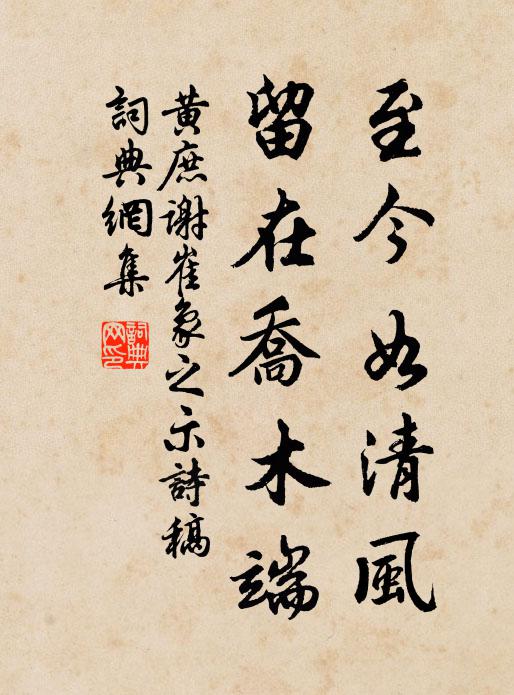 至今如清風
留在喬木端
黃庶謝崔象之示詩稿
詞典網集
詞典
网印